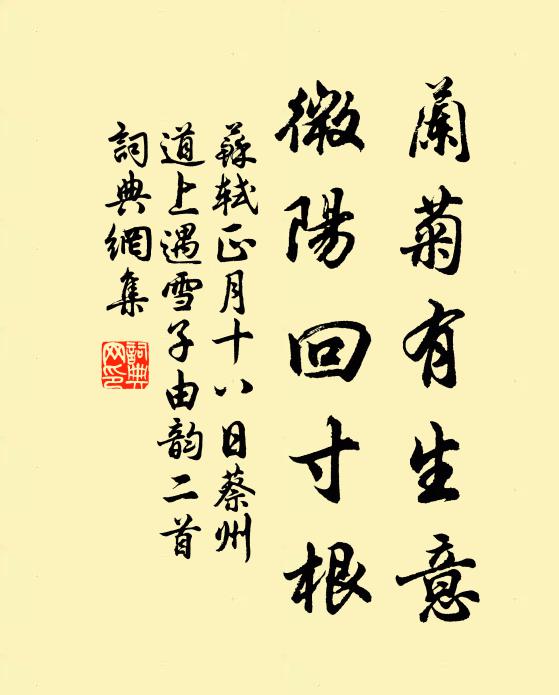 蘭菊有生意
微陽回寸根
蘇軾正月十八日蔡州
道上遇雪子由韵二首
詞典網集
詞典
网印